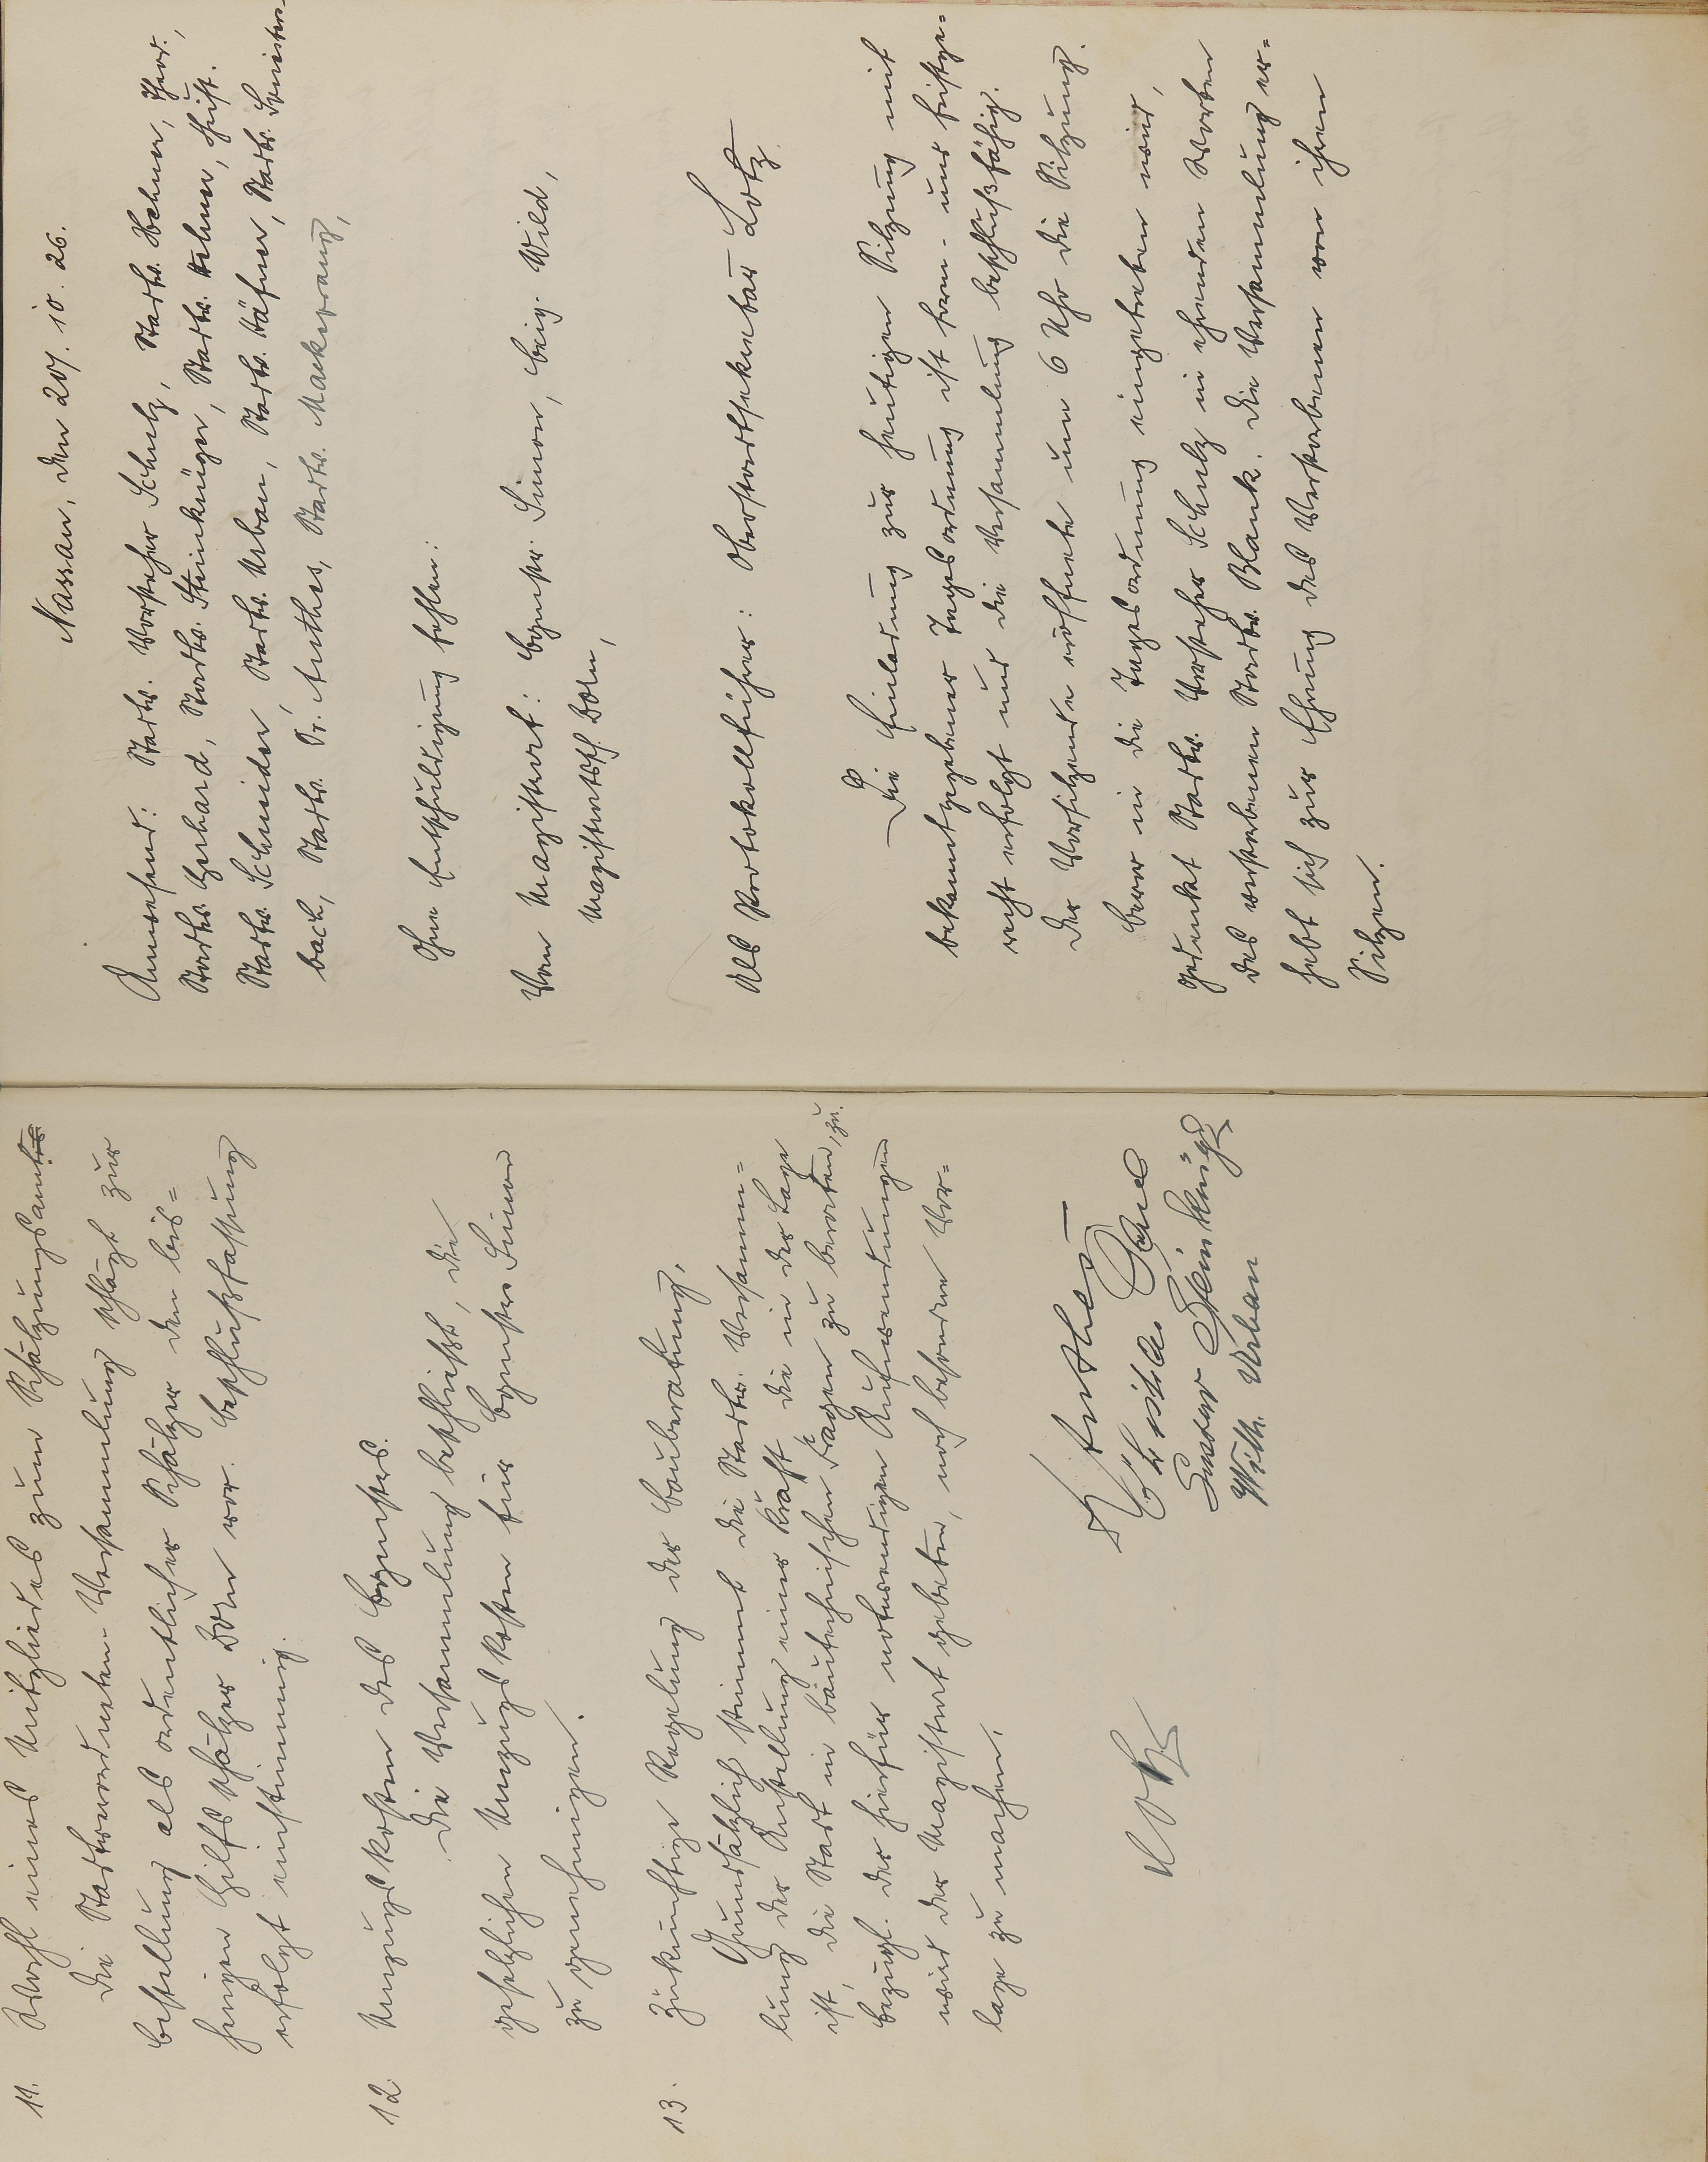 11. Wahl eines Mitgliedes zum Schätzungsamt
Die Stadtverordneten-Versammlung schlägt zur
Bestellung als ordentlicher Schätzer den bis=
herigen Hilfsschätzer Born vor. Beschlußfassung
erfolgt einstimmig.
12. Umzugskosten des Bgmstrs.
Die Versammlung beschließt, die
gesetzlichen Umzugskosten für Bgmstr. Simon
zu genehmigen.
13. Zukünftige Regelung der Bauberatung.
Grundsätzlich stimmt die Stadtv. Versamm=
lung der Anstellung einer Kraft, die in der Lage
ist, die Stadt in bautechnischen Fragen zu beraten, zu.
Bezügl. der hierfür notwendigen Aufwendungen
wird der Magistrat gebeten, noch besondere Vor=
lage zu machen.
Anthes
Gustav Steinkrüger
Wilh. Urban
Lotz
Nassau, den 27. 10. 26.
Anwesend: Stadtv. Vorsteher Schulz, Stadtv. Hehner, Theod.,
Stadtv. Gerhard, Stadtv. Steinkrüger, Stadtv. Hehner, Christ.
Stadtv. Schneider, Stadtv. Urban, Stadtv. Häfner, Stadtv.
bach, Stadtv. Dr. Anthes, Stadtv. Mackeprang,
Ohne Entschuldigung fehlen:
Vom Magistrat: Bgmstr. Simon, Beig. Wild,
Magistratssch. Born,
Als Protokollführer: Oberstadtsekretär Lotz
Die Einladung zur heutigen Sitzung mit
bekanntgegebener Tagesordnung ist form- und fristge=
recht erfolgt und die Versammlung beschlußfähig.
Der Vorsitzende eröffnete um 6 Uhr die Sitzung.
Bevor in die Tagesordnung eingetreten wird,
gedenkt Stadtv. Vorsteher Schulz in ehrenden Worten
des verstorbenen Stadtv. Blank. Die Versammlung er=
hebt sich zur Ehrung des Verstorbenen von ihren
Sitzen.